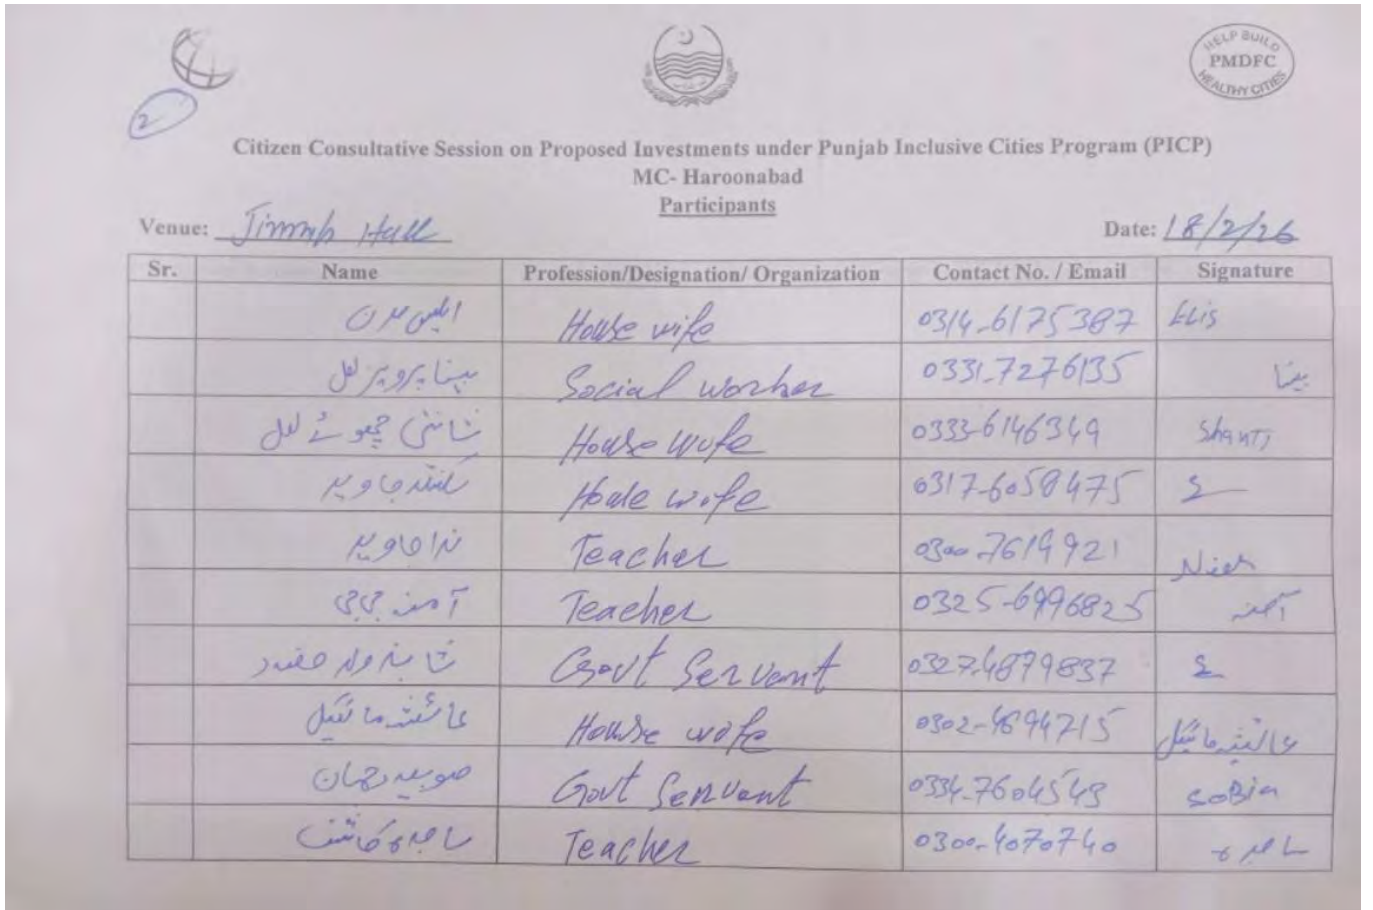 HELP BUILD
PMDFC
HEALTHY CITIES
2
Citizen Consultative Session on Proposed Investments under Punjab Inclusive Cities Program (PICP)
MC- Haroonabad
Participants
Venue: Jinnah Hall Date: 18/2/26
Sr. Name Profession/Designation/ Organization Contact No. / Email Signature
House wife 0314-6175387 Elis
بینا پرویز لعل Social worker 0331-7276135 بینا
شانتی House wife 0333-6146349 Shanti
جاوید House wife 0317-6058475
ندا جاوید Teacher 0300-7619921
آمنہ بی بی Teacher 0325-6996825 آمنہ
Govt Servant 0327-4879837
عائشہ مائیکل House wife 0302-4894715 عائشہ مائیکل
صوبیہ Govt Servant 0334-7604543 SoBia
ساجدہ کاشف Teacher 0300-4070740 ساجدہ